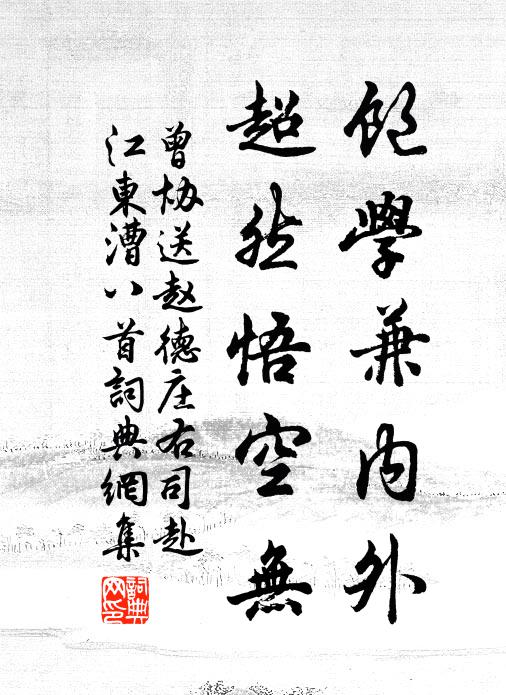 飽學兼內外
超然悟空無
曾協送赵德庄右司赴
江東漕八首詞典網集
詞典网印